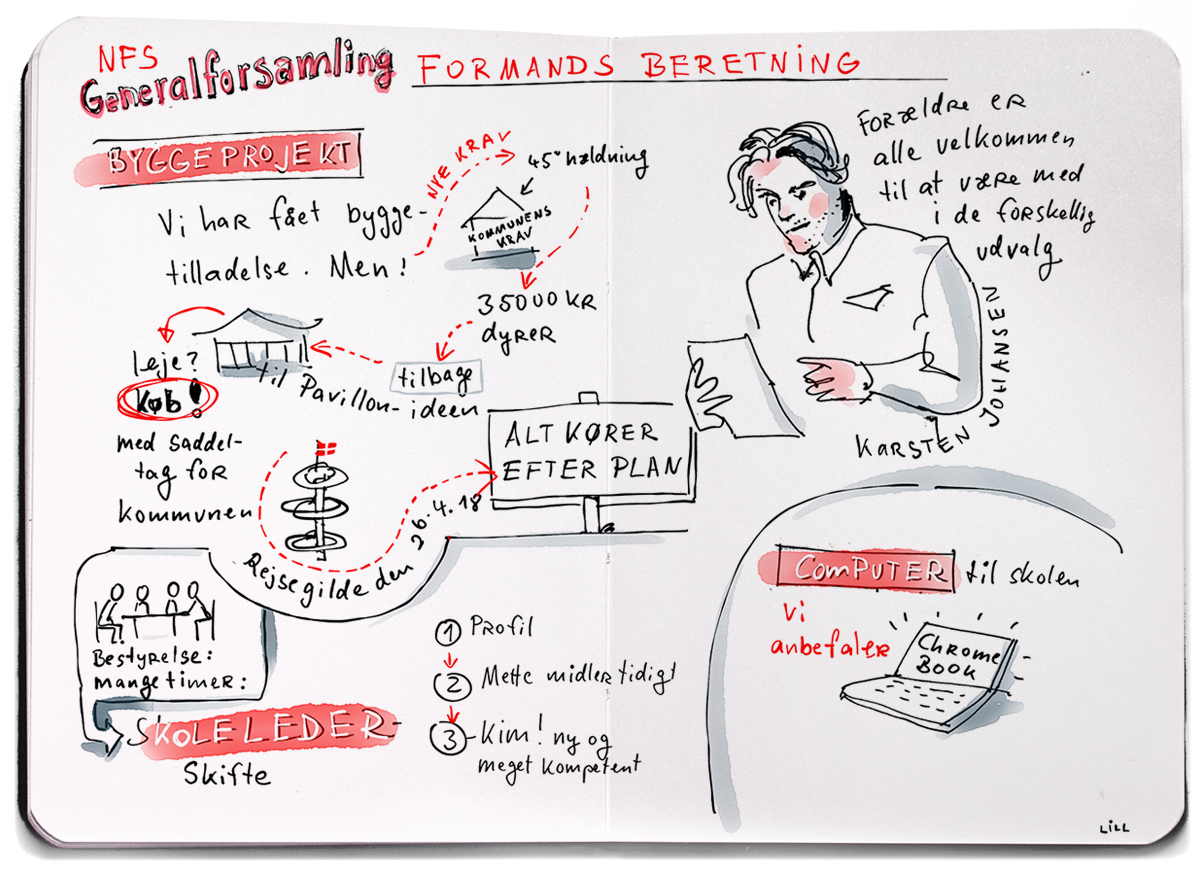 NFS
Generalforsamling
FORMANDS BERETNING
BYGGEPROJEKT
Vi har fået bygge-
tilladelse. Men!
NYE KRAV
45° hældning
KOMMUNENS
KRAV
35000 KR
dyrer
tilbage
til Pavillon-ideen
Leje?
Køb!
med saddel-
tag for
kommunen
Rejsegilde den
26.4.18
ALT KØRER
EFTER PLAN
Bestyrelse:
mange timer:
SKOLELEDER-
Skifte
1 Profil
2 Mette midlertidigt
3 - Kim! ny og
meget kompetent
Forældre er
alle velkommen
til at være med
i de forskellig
udvalg
KARSTEN JOHANSEN
COMPUTER til skolen
Vi
anbefaler
CHROME
BOOK
LILL